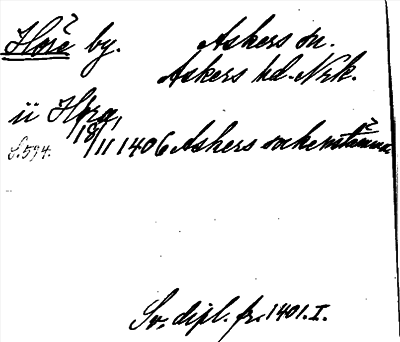 by. Askers sn.
Askers hd. Nrk.
ii Hora
18/11 1406 Askers sockenstämma
S. 594.
Sv. dipl. fr. 1401. I.